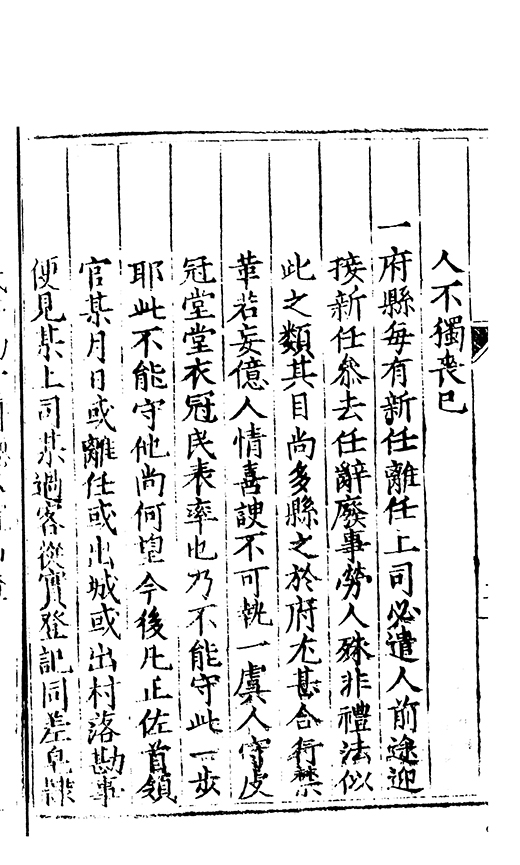 人不獨喪已
一府縣每有新任離任上司必遣人前途迎
接新任叅去任辭廢事勞人殊非禮法似
此之類其目尚多縣之於府尤甚合行禁
革若妄億人情喜諛不可執一虞人守皮
冠堂堂衣冠民表率也乃不能守此一步
耶此不能守他尚何望今後凡正佐首領
官某月日或離任或出城或出村落勘事
便見某上司某過客從實登記同差皂隸